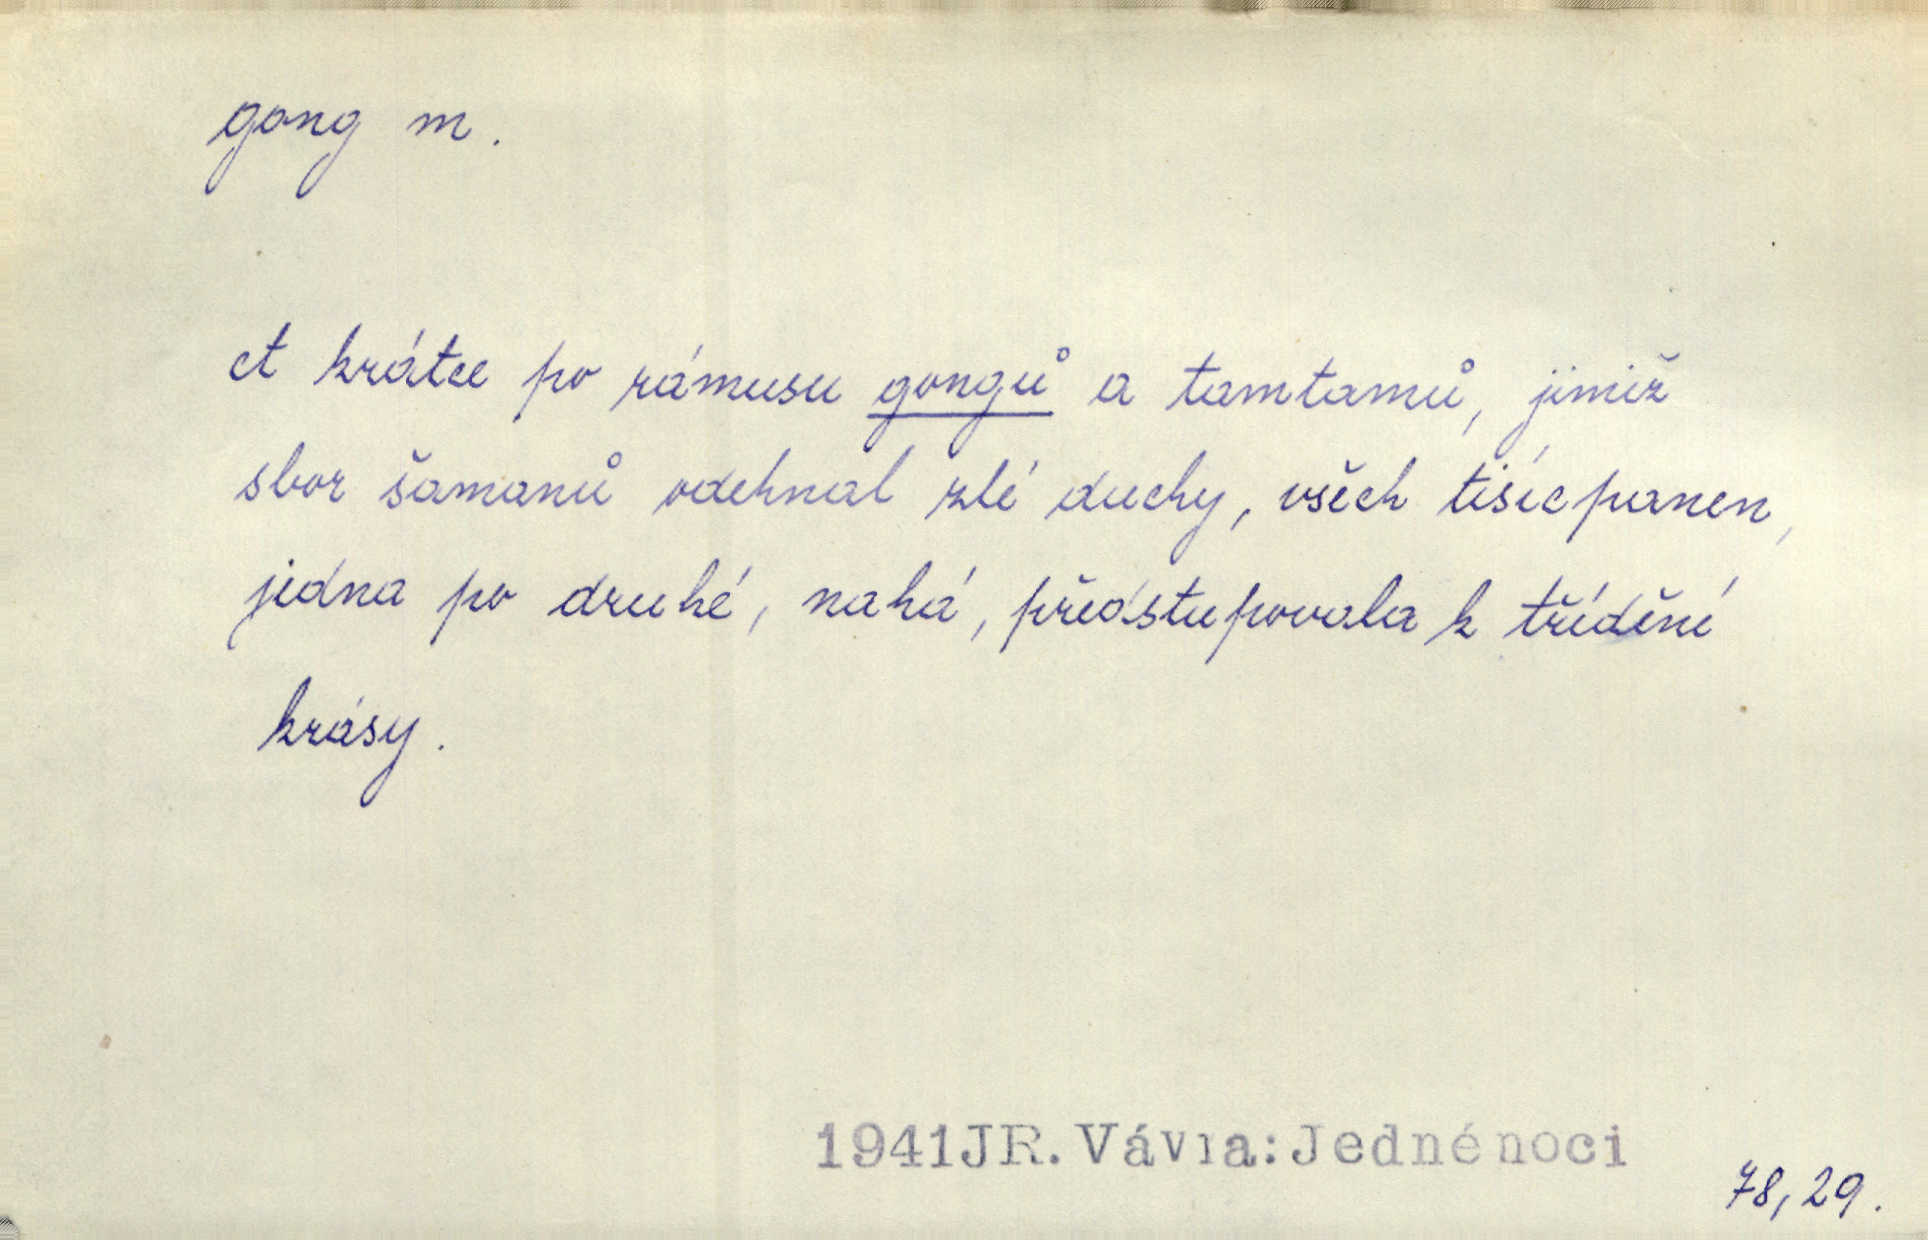 gong m.
A krátce po rámusu gongů a tamtamů, jimiž
sbor šamanů odehnal zlé duchy, všech tisíc panen,
jedna po druhé, nahá, předstupovala k třídění
krásy.
1941 JR. Vávra: Jedné noci
78, 29.